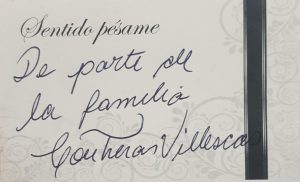 Sentido pésame
De parte de
la familia
Contreras Villesca